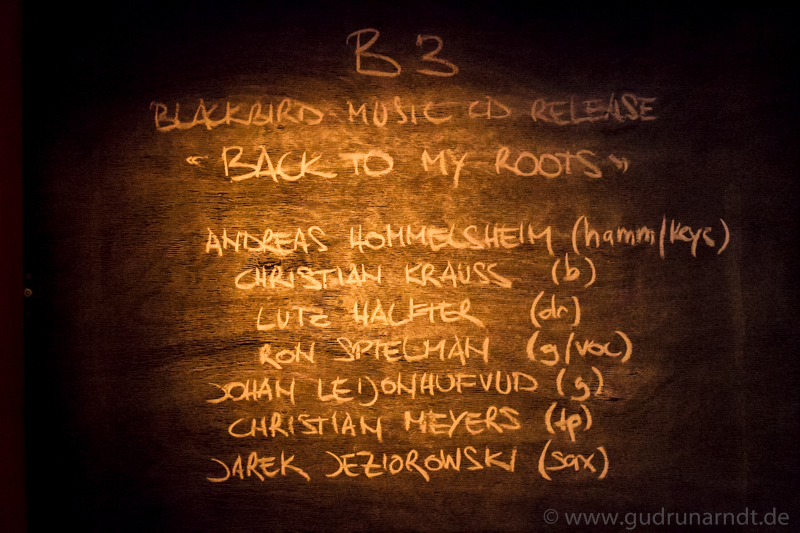 B 3
BLACKBIRD MUSIC CD RELEASE
"BACK TO MY ROOTS"
ANDREAS HOMMELSHEIM (hamm/keys)
CHRISTIAN KRAUSS (b)
LUTZ HALFTER (dr)
RON SPIELMAN (g/voc)
JOHAN LEIJONHUFVUD (g)
CHRISTIAN MEYERS (tp)
JAREK JEZIOROWSKI (sax)
© www.gudrunarndt.de